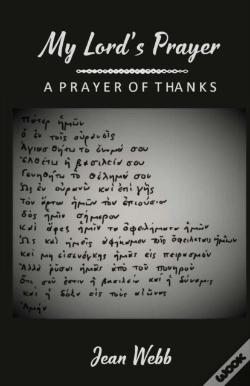 My Lord's Prayer
A PRAYER OF THANKS
Πάτερ ἡμῶν
ὁ ἐν τοῖς οὐρανοῖς
Ἁγιασθήτω τὸ ὄνομά σου
Ἐλθέτω ἡ βασιλεία σου
Γενηθήτω τὸ θέλημά σου
Ὡς ἐν οὐρανῷ καὶ ἐπὶ γῆς
Τὸν ἄρτον ἡμῶν τὸν ἐπιούσιον
δὸς ἡμῖν σήμερον
Καὶ ἄφες ἡμῖν τὰ ὀφειλήματα ἡμῶν
Ὡς καὶ ἡμεῖς ἀφήκαμεν τοῖς ὀφειλέταις ἡμῶν
Καὶ μὴ εἰσενέγκῃς ἡμᾶς εἰς πειρασμόν
Ἀλλὰ ῥῦσαι ἡμᾶς ἀπὸ τοῦ πονηροῦ
Ὅτι σοῦ ἐστιν ἡ βασιλεία καὶ ἡ δύναμις
καὶ ἡ δόξα εἰς τοὺς αἰῶνας
Ἀμήν
Jean Webb
wook